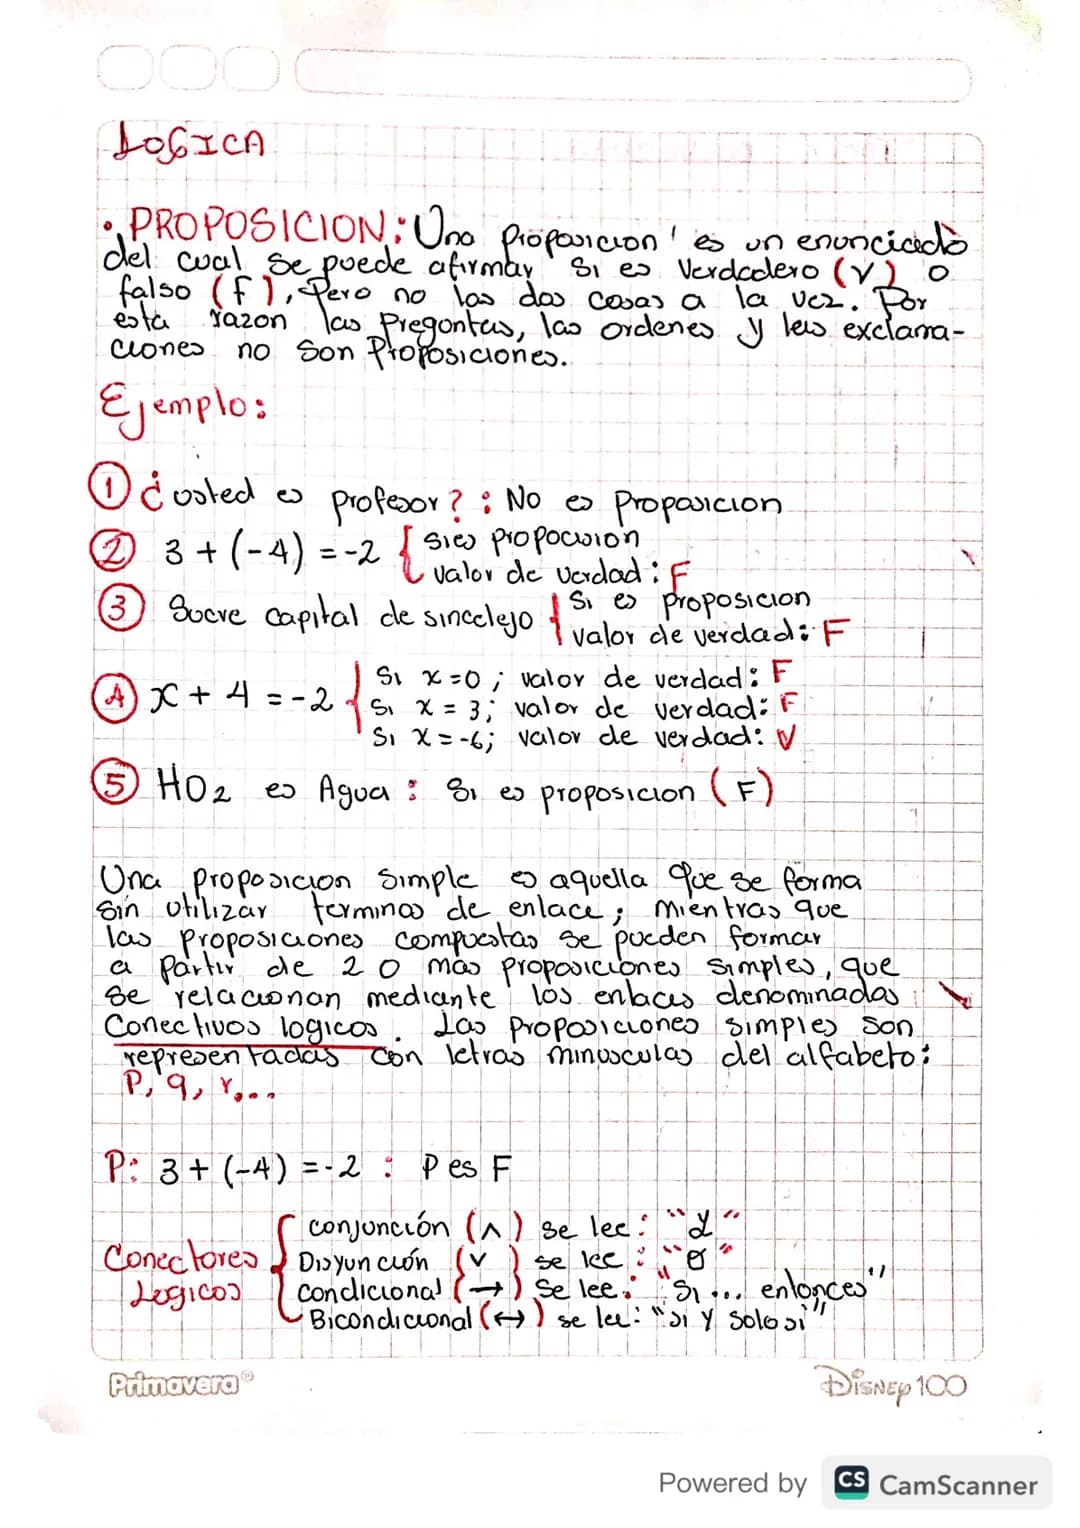 LOGICA
• PROPOSICION: Una proposicion es un enunciado
del cual se puede afirmar si es verdadero (V) o
falso (F), Pero no las dos cosas a la vez. Por
esta razon las Preguntas, las ordenes y las exclama-
ciones no son Proposiciones.
Ejemplo:
① ¿usted es profesor? : No es Proposicion
② 3 + (-4) = -2 { si es propocision
valor de verdad: F
③ Sucre capital de sincelejo { Si es proposicion
valor de verdad: F
④ x + 4 = -2 { Si x = 0; valor de verdad: F
Si x = 3; valor de verdad: F
Si x = -6; valor de verdad: V
⑤ HO2 es Agua : Si es proposicion (F)
Una proposicion simple es aquella que se forma
sin utilizar terminos de enlace; mientras que
las proposiciones compuestas se pueden formar
a partir de 2 o mas proposiciones simples, que
se relacionan mediante los enlaces denominadas
Conectivos logicos. Las proposiciones simples son
representadas con letras minusculas del alfabeto:
P, q, r,...
P: 3 + (-4) = -2 : P es F
Conectores Logicos { conjunción (∧) se lee: "y"
Disyunción (∨) se lee: "o"
condicional (→) se lee: "Si ... entonces"
Bicondicional (↔) se lee: "si y solo si"
Primavera®
Disney 100
Powered by CS CamScanner